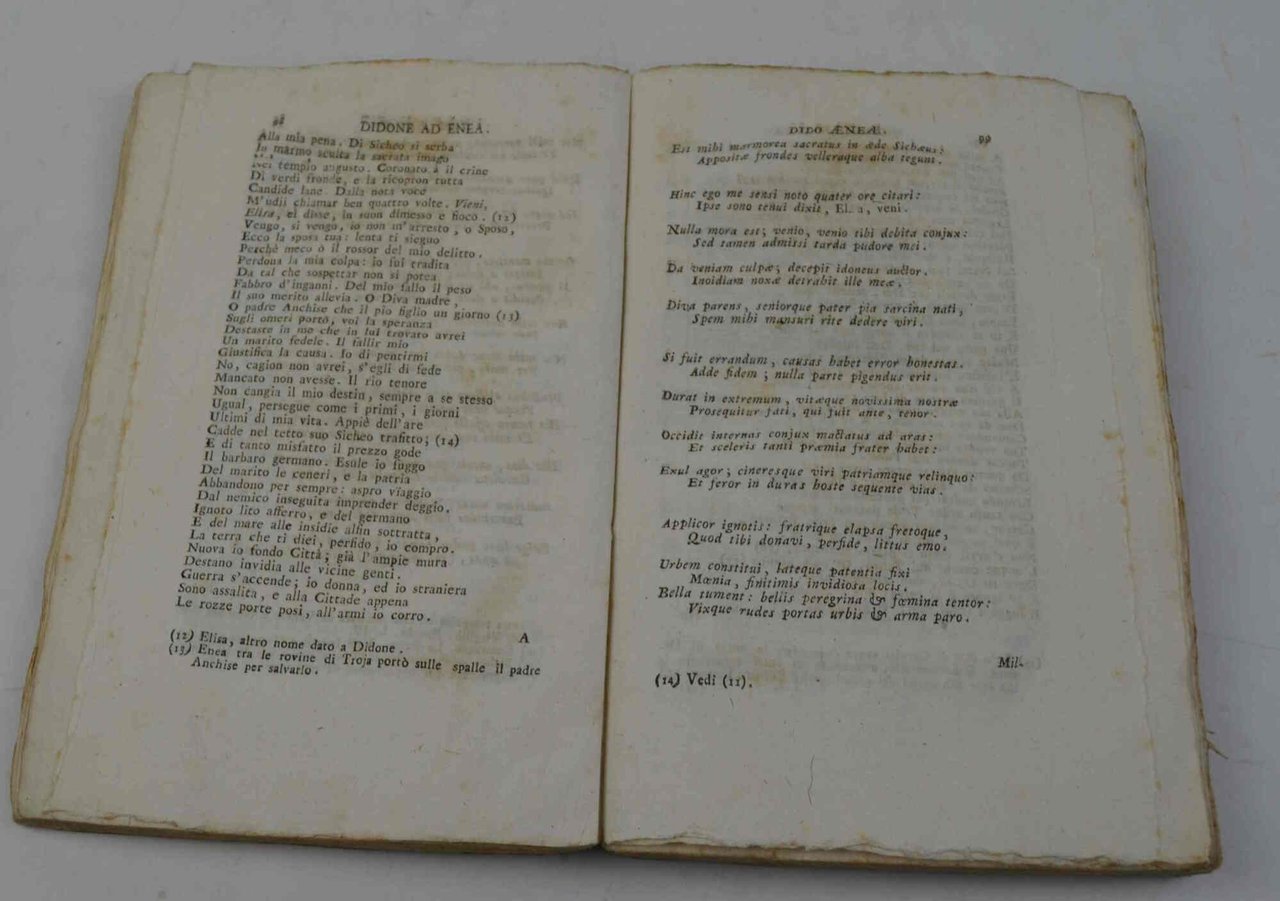 98
DIDONE AD ENEA.
Alla mia pena. Di Sicheo si serba
In marmo sculta la sacrata imago
Nel tempio augusto. Coronato à il crine
Di verdi fronde, e la ricopron tutta
Candide lane. Dalla nota voce
M'udii chiamar ben quattro volte. Vieni,
Elisa, ei disse, in suon dimesso e fioco. (12)
Vengo, sì vengo, io non m'arresto, o Sposo,
Ecco la sposa tua: lenta ti sieguo
Perchè meco ò il rossor del mio delitro.
Perdona la mia colpa: io fui tradita
Da tal che sospettar non si potea
Fabbro d'inganni. Del mio fallo il peso
Il suo merito allevia. O Diva madre,
O padre Anchise che il pio figlio un giorno (13)
Sugli omeri portò, voi la speranza
Destaste in me che in lui trovato avrei
Un marito fedele. Il fallir mio
Giustifica la causa. Io di pentirmi
No, cagion non avrei, s'egli di fede
Mancato non avesse. Il rio tenore
Non cangia il mio destin, sempre a se stesso
Ugual, persegue come i primi, i giorni
Ultimi di mia vita. Appiè dell'are
Cadde nel tetto suo Sicheo trafitto; (14)
E di tanto misfatto il prezzo gode
Il barbaro germano. Esule io fuggo
Del marito le ceneri, e la patria
Abbandono per sempre: aspro viaggio
Dal nemico inseguita imprender deggio.
Ignoto lito afferro, e del germano
E del mare alle insidie alfin sottratta,
La terra che ti diei, perfido, io compro.
Nuova io fondo Città; già l'ampie mura
Destano invidia alle vicine genti.
Guerra s'accende; io donna, ed io straniera
Sono assalita, e alla Cittade appena
Le rozze porte posi, all'armi io corro.
A
(12) Elisa, altro nome dato a Didone.
(13) Enea tra le rovine di Troja portò sulle spalle il padre
Anchise per salvarlo.
DIDO ÆNEÆ.
99
Est mihi marmorea sacratus in æde Sichæus:
Appositæ frondes velleraque alba tegunt.
Hinc ego me sensi noto quater ore citari:
Ipse sono tenui dixit, El. a, veni.
Nulla mora est; venio, venio tibi debita conjux:
Sed tamen admissi tarda pudore mei.
Da veniam culpæ; decepit idoneus auctor.
Inoidiam noxæ detrahit ille meæ.
Diva parens, seniorque pater pia sarcina nati,
Spem mihi mansuri rite dedere viri.
Si fuit errandum, causas habet error honestas.
Adde fidem; nulla parte pigendus erit.
Durat in extremum, vitæque novissima nostræ
Prosequitur fati, qui fuit ante, tenor.
Occidit internas conjux mactatus ad aras:
Et sceleris tanti præmia frater habet:
Exul agor; cineresque viri patriamque relinquo:
Et feror in duras hoste sequente vias.
Applicor ignotis: fratrique elapsa fretoque,
Quod tibi donavi, perfide, littus emo.
Urbem constitui, lateque patentia fixi
Mœnia, finitimis invidiosa locis.
Bella tument: bellis peregrina & fœmina tentor:
Vixque rudes portas urbis & arma paro.
Mil-
(14) Vedi (11).